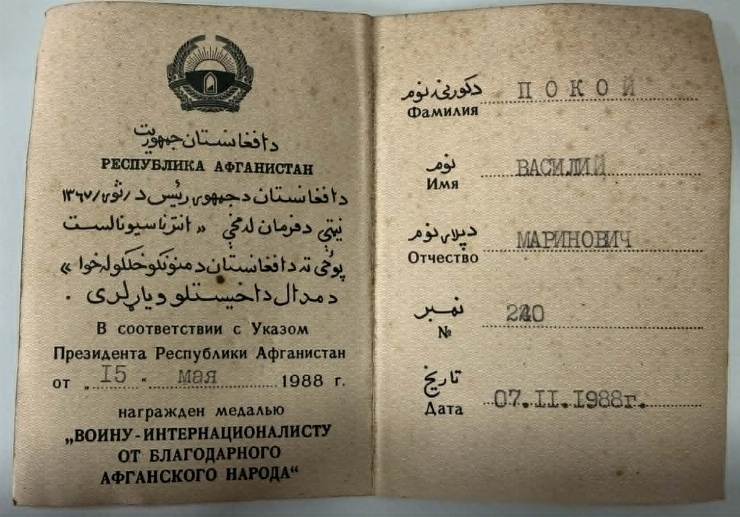 دافغانستان جمهوریت
РЕСПУБЛИКА АФГАНИСТАН
دافغانستان دجمهوری رئیس د /ثور/ ۱۳۶۷
نیټې دفرمان له مخې «انترناسیونالست
پوځی ته دافغانستان دمننونکو خلکو له خوا»
دمدال داخیستلو ویاړ لری .
В соответствии с Указом
Президента Республики Афганистан
от „ 15 “ мая 1988 г.
награжден медалью
„ВОИНУ-ИНТЕРНАЦИОНАЛИСТУ
ОТ БЛАГОДАРНОГО
АФГАНСКОГО НАРОДА“
دکورنۍ نوم ПОКОЙ
Фамилия
نوم ВАСИЛИЙ
Имя
دپلار نوم МАРИНОВИЧ
Отчество
نمبر
№
تاریخ 07.II.1988г.
Дата